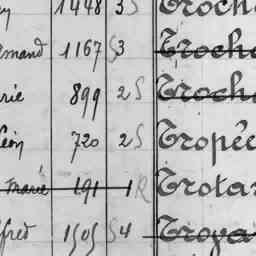 1448 3 S Troch
mand 1167 S 3 Troch
rie 899 2 S Troch
éon 720 2 S Tropé
Marie 191 1 R Trota
fred 1505 S 4 Troya